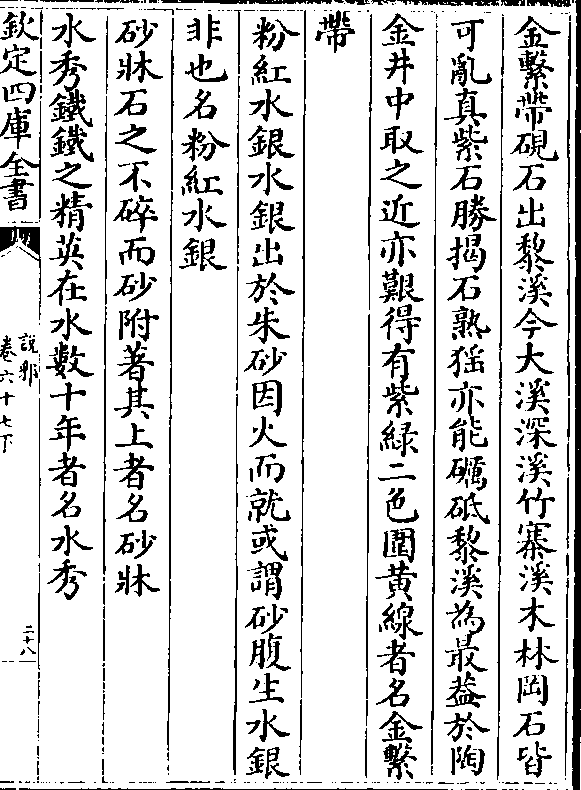 金繫帶硯石出黎溪今大溪深溪竹寨溪木林岡石皆
可亂真紫石勝揭石熟猺亦能礪砥黎溪為最葢於陶
金井中取之近亦艱得有紫緑二色圍黄線者名金繫
帶
粉紅水銀水銀出於朱砂因火而就或謂砂腹生水銀
非也名粉紅水銀
砂牀石之不碎而砂附著其上者名砂牀
水秀鐵鐵之精英在水數十年者名水秀
欽定四庫全書
說郛
卷六十七下
二十八